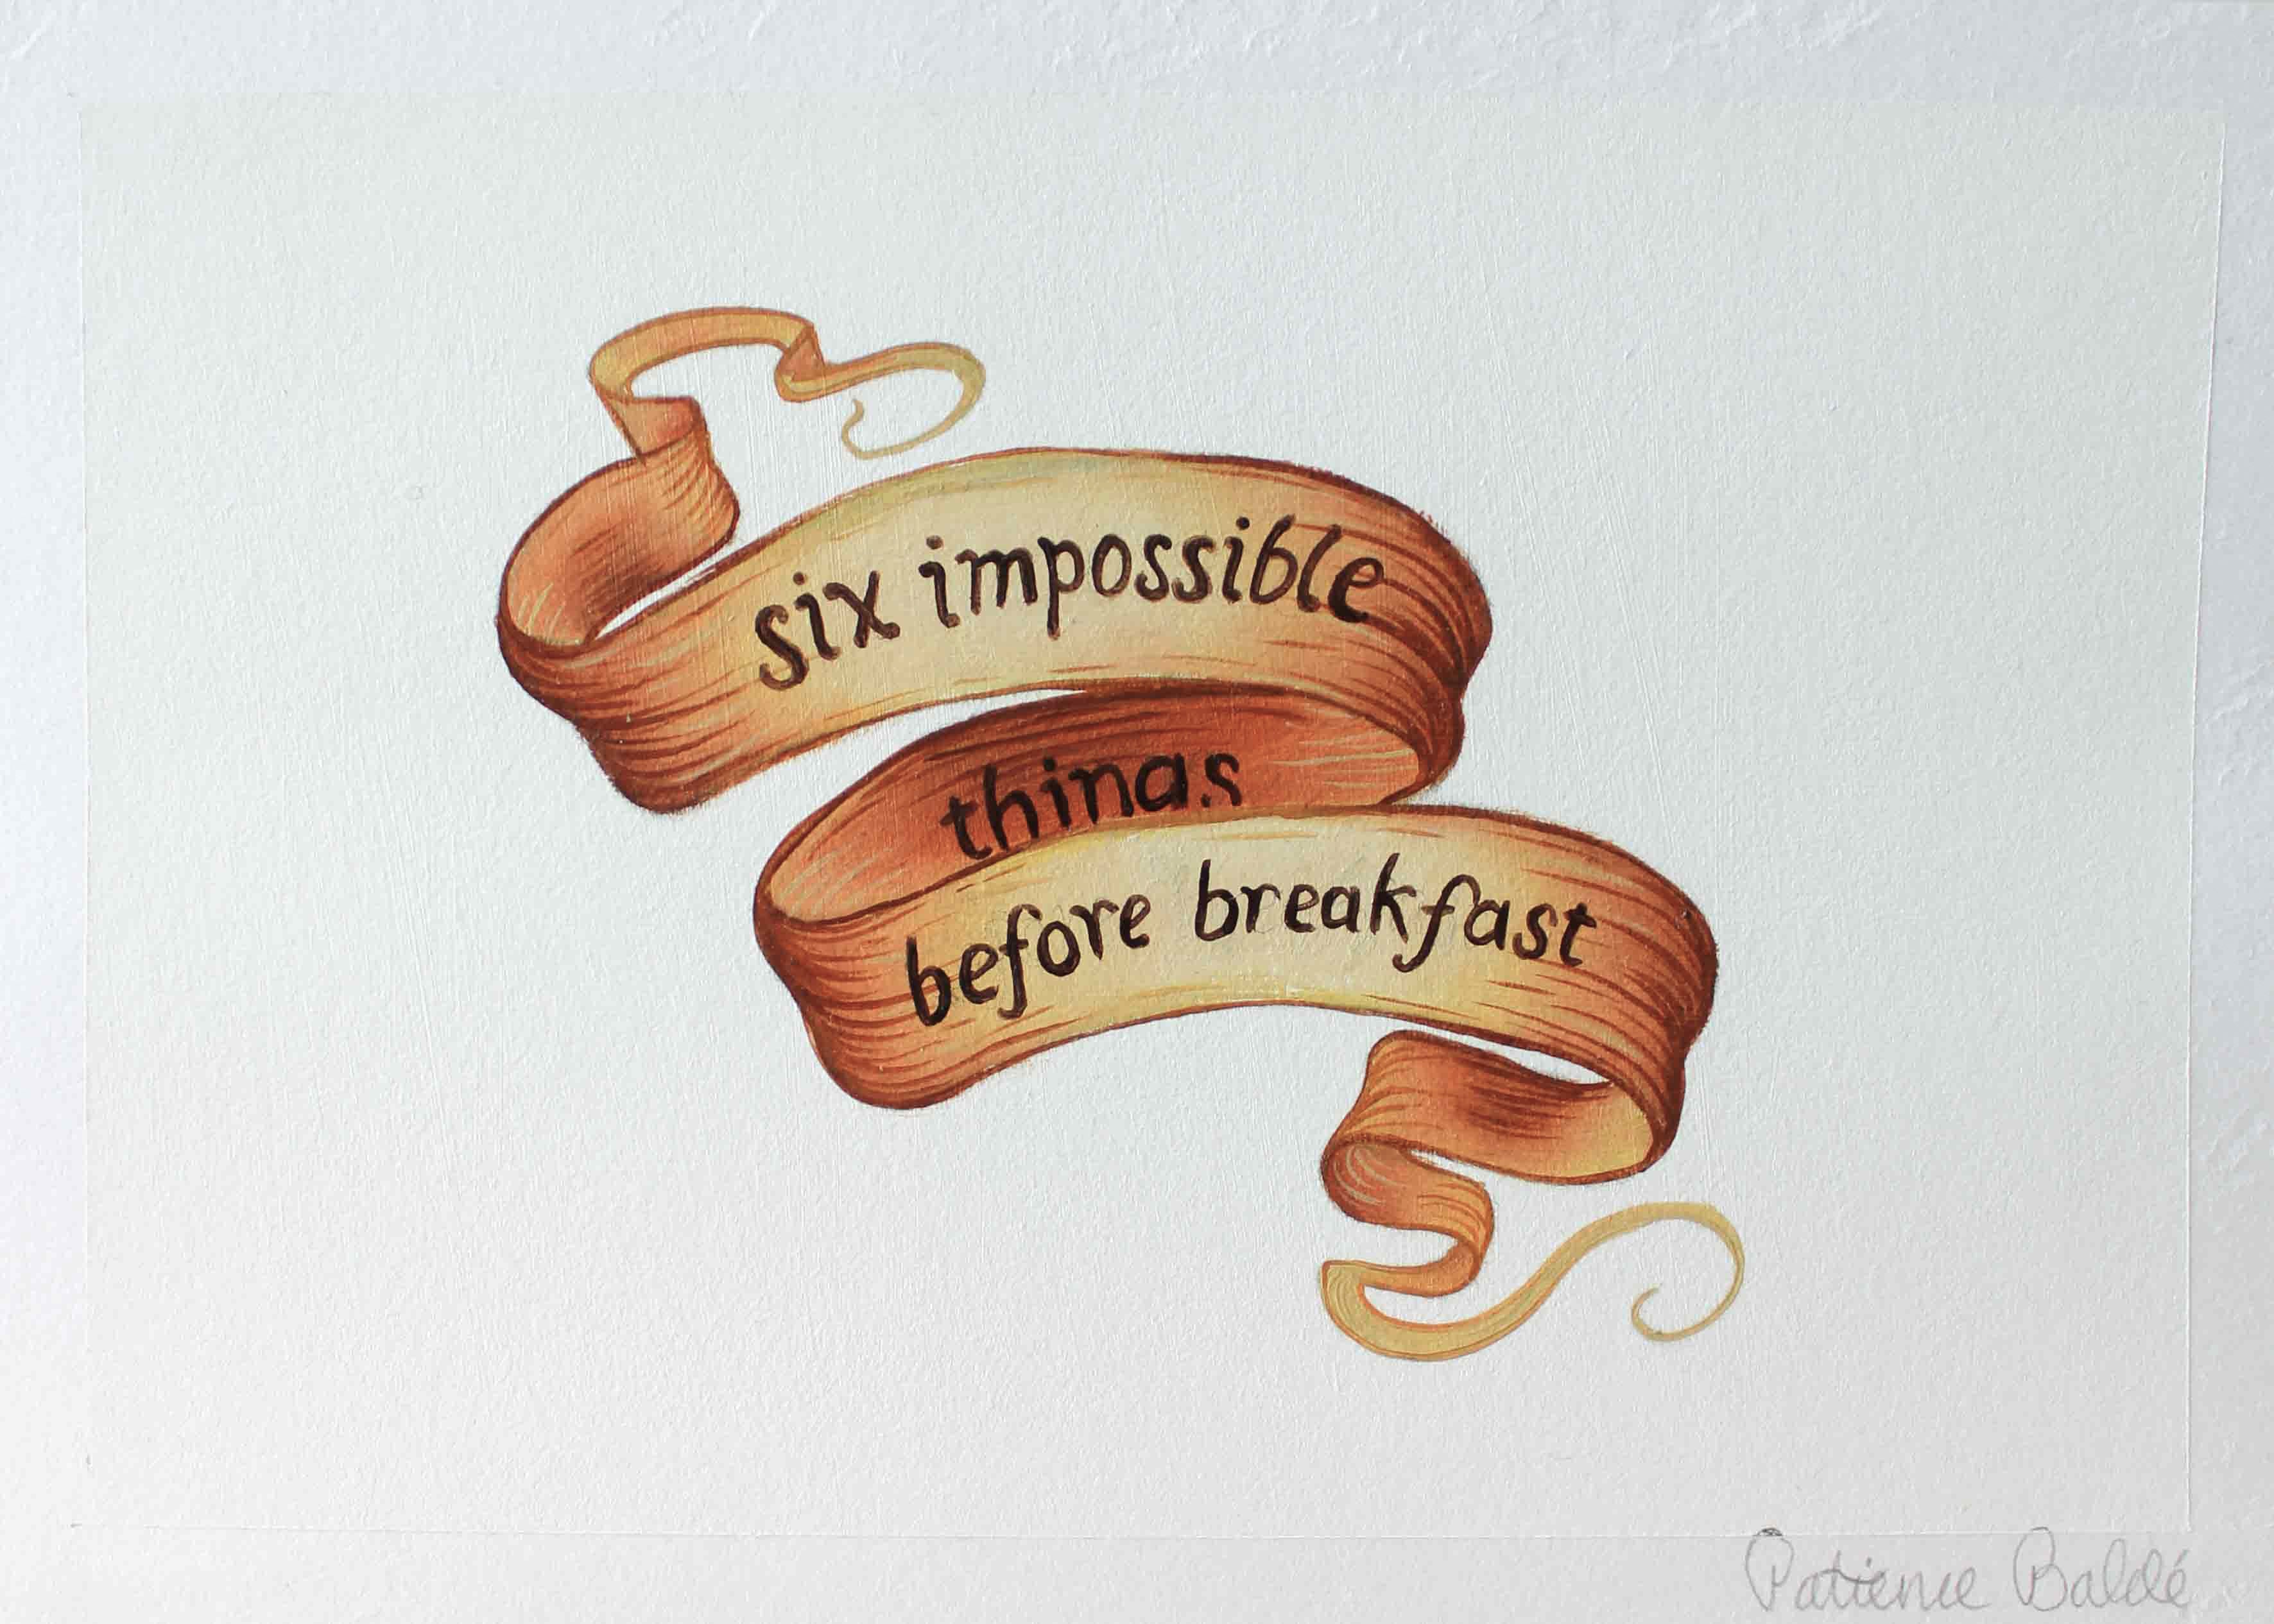 six impossible
things
before breakfast
Patience Baldé